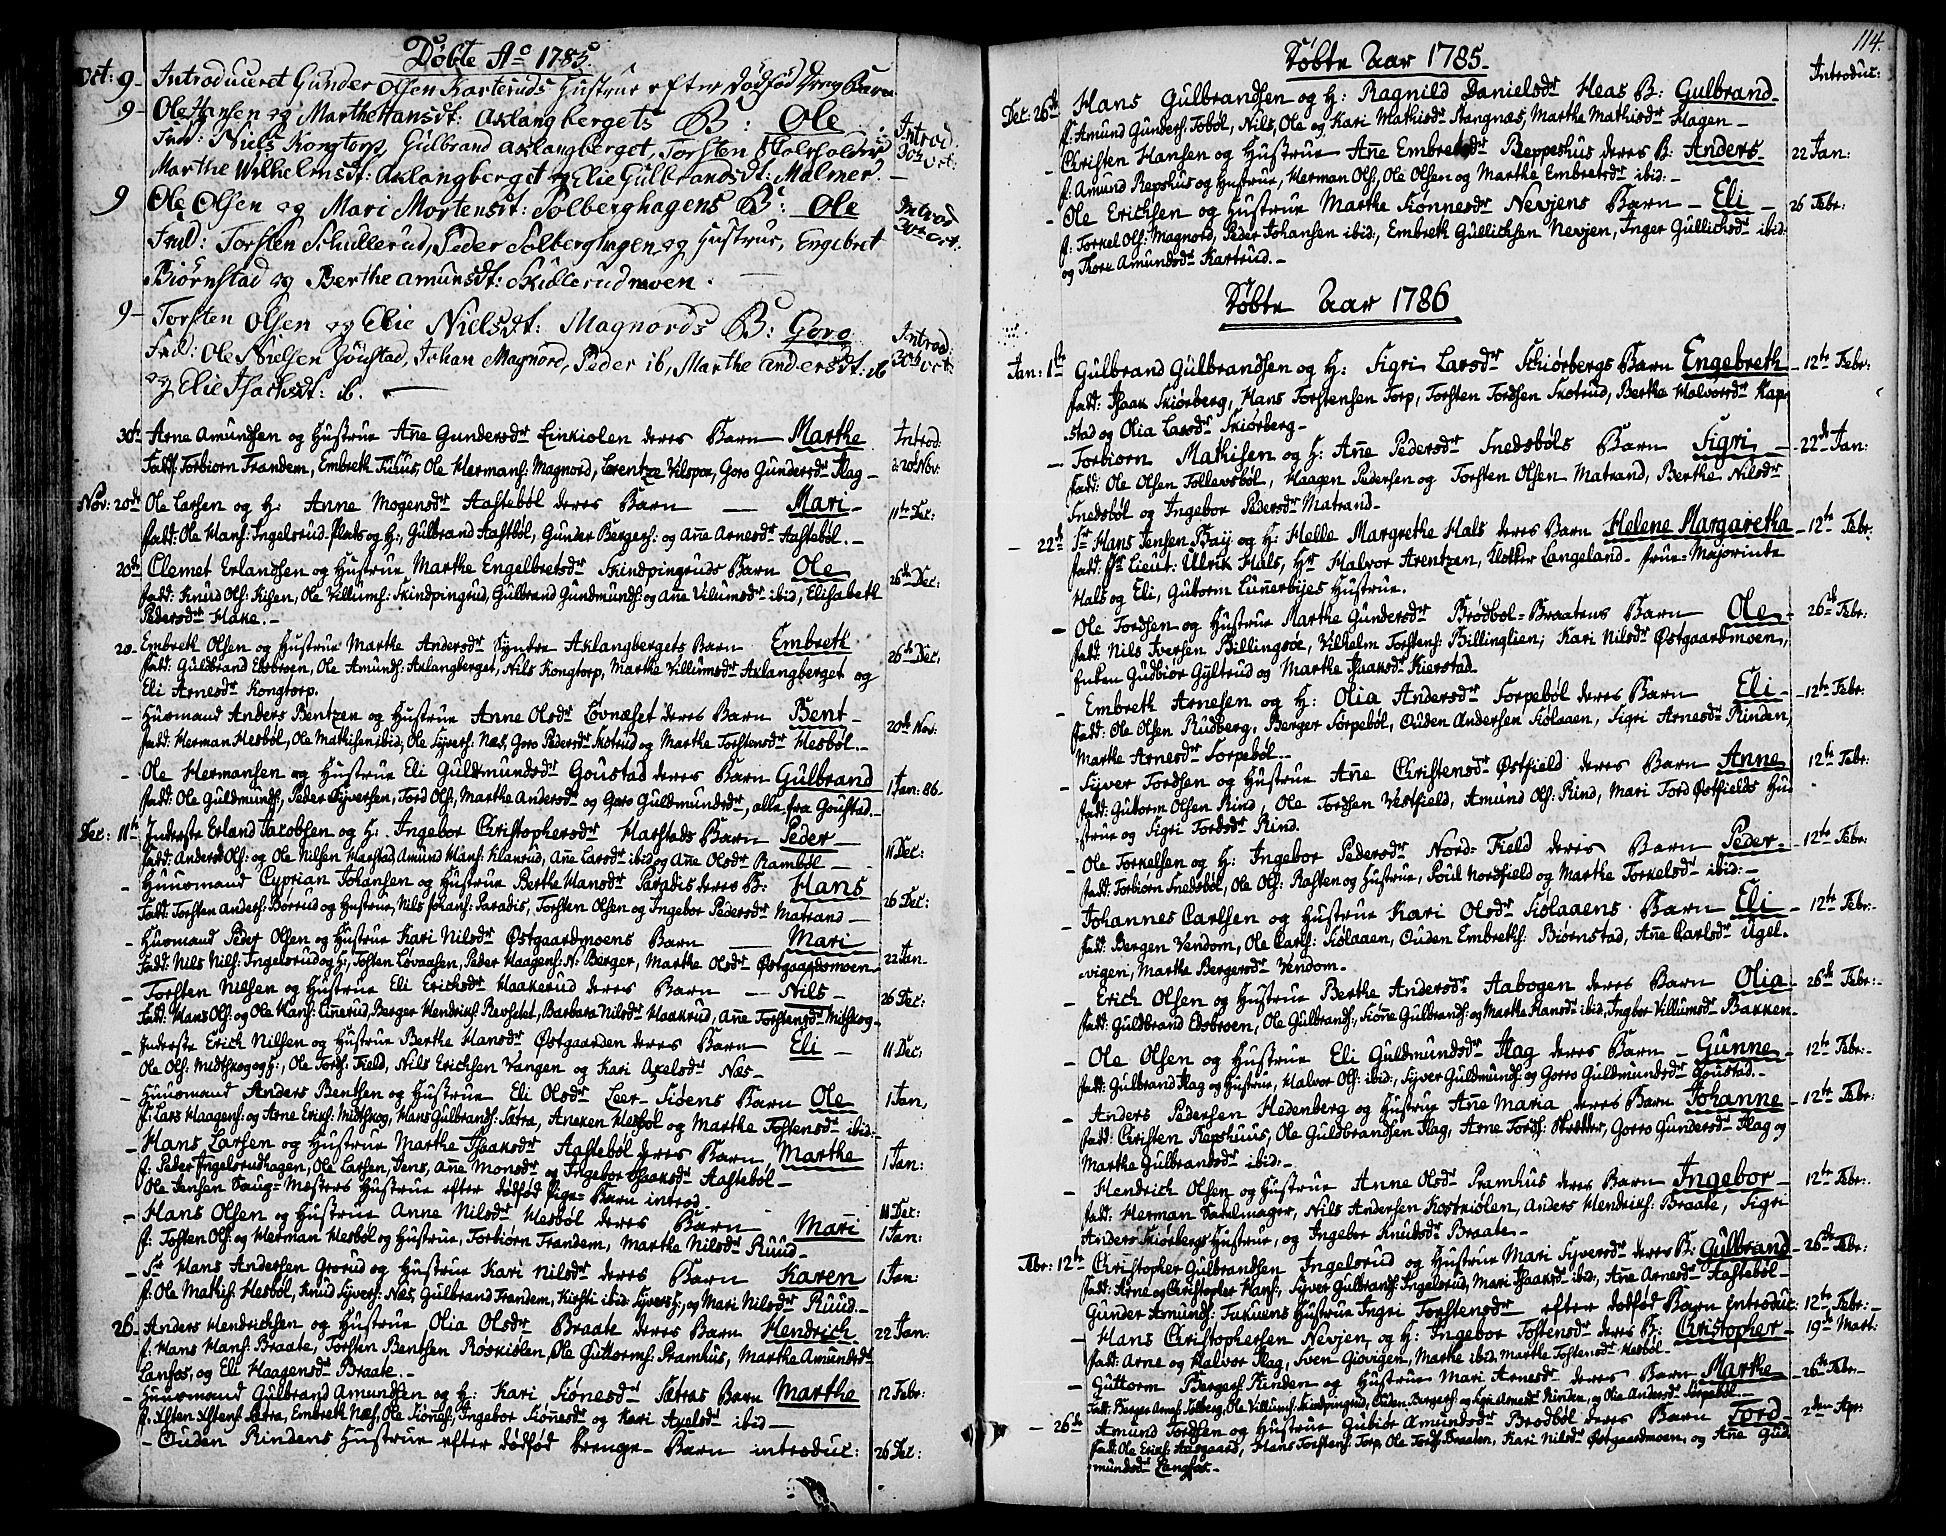 Døbte Ao 1785.
Oct: 9 – Introduceret Gunder Olsen Karteruds Hustrue efter dødfød Dreng Barn
9 – Ole Hansen og Marthe Hansdt: Axlangbergets B: Ole Introd.
Fad: Niels Kongtorp, Gulbrand Axlangberget, Torsten 30te Oct:
Marthe Wilhelmsdt: Axlangberget og Elie Gulbrandsdt: Malmer. –
9 Ole Olsen og Mari Mortensdt: Solberghagens B: Ole Introd
Fad: Torsten Skullerud, Peder Solberghagen og Hustrue, Engebret 30te Oct:
Biørnstad og Berthe Amunsdt: Skullerudmoen.
9 – Torsten Olsen og Elie Nielsdt: Magnords B: Goro Introd:
Fad: Ole Nielsen Goustad, Johan Magnord, Peder ib, Marthe Andersdt: ib 30te Oct:
og Elie Isachsdt: ib. –
30te Arne Amundsen og Hustrue Añe Gundersdr Linkiolen deres Barn Marthe Introd.
Fadd: Torbiorn Trandem, Embreth Fuhus, Ole Hermans: Magnord, Lorentze Vilspøe, Goro Gundersdr Flag – 20 Nov:
Nov: 20de Ole Larsen og H: Anne Mogensdr Aastebøl deres Barn – Mari – 11te Dec:
fadd: Ole Hans: Ingelsrud-Plads og H:, Gulbrand Aastbøl, Gunder Bergers: og Añe Arnesdr Aastebøl. –
20de Clemet Erlandsen og Hustrue Marthe Engelbretsdr Skindpingruds Barn Ole 26de Dec:
fadd: Knud Ols: Kisen, Ole Villums: Skindpingrud, Gulbrand Gundmunds: og Añe Vilumsdr ibid, Elisabeth
Pedersdr Hake. –
20 – Embreth Olsen og Hustrue Marthe Andersdr Syntre Axlangbergets Barn Embreth 26de Dec:
fadd: Guldbrand Edsbroen, Ole Amunds: Axlangberget, Nils Kongtorp, Marthe Villumsdr Axlangberget og
Eli Arnesdr Kongtorp.
– Huusmand Anders Bentzen og Hustrue Anne Olsdr Lovnæset deres Barn Bent – 20de Nov:
fadd: Herman Hesbøl, Ole Mathisen ibid, Ole Syvers: Næs, Goro Pedersdr Skotrud og Marthe Torstensdr Hesbøl. –
– Ole Hermansen og Hustrue Eli Guldmundsdr Goustad deres Barn Gulbrand 1 Jan: 86.
fadd: Ole Guldmunds:, Peder Syversen, Tord Ols:, Marthe Andersdr og Goro Guldmundsdr, alle fra Goustad. –
Dec: 11te Inderste Erland Jacobsen og H: Ingebor Christophersdr Harstads Barn Peder – 11 Dec:
fadd: Anders Ols: og Ole Nilsen Harstad, Amund Hans: Klanrud, Añe Larsdr ibid og Añe Olsdr Rambøl –
– Huusmand Cyprian Johansen og Hustrue Berthe Hansdr Paradis deres B: Hans 26 Dec:
Fadd: Torsten Anders: Borrud og Hustrue, Nils Johans: Paradis, Torsten Olsen og Ingebor Pedersdr Matrand –
– Huusmand Peder Olsen og Hustrue Kari Nilsdr Østgaardmoens Barn – Mari 22 Jan –
Fadd: Nils Nils: Ingelsrud og H:, Tosten Lovaasen, Peder Haagens: N: Berger, Marthe Olsdr Østgaardsmoen
– Torsten Nilsen og Hustrue Eli Ericksdr Haakerud deres Barn – Nils – 26 Dec:
Fadd: Hans Ols: og Ole Hans: Linerud, Berger Hendrichs: Revsetet, Barbara Nilsdr Haakrud, Añe Torstensdr Mitskog –
– Inderste Erich Nilsen og Hustrue Berthe Hansdr Østgaarden deres Barn Eli – 11 Dec:
Ole Ols: Midtskog og H:, Ole Tords: Field, Nils Erichsen Vangen og Kari Axelsdr Næs –
– Huusmand Anders Benthsen og Hustrue Eli Olsdr Leer-Sioens Barn Ole 1 Jan,
f: Lars Haagens: og Arne Erichs: Midtskog, Hans Gulbrands: Sætra, Aneken Hesbøl og Marthe Tostensdr ibid: –
– Hans Larsen og Hustrue Marthe Isaaksdr Aastebøl deres Barn Marthe 1 Jan:
f: Peder Ingelsrudhagen, Ole Larsen, Jens, Ane Monsdr og Ingebor Isaaksdr Aastebøl –
Ole Jensen Saug-Mesters Hustrue efter dødfød Pige-Barn introd. 11 Dec:
– Hans Olsen og Hustrue Anne Nilsdr Hesbøl deres Barn Mari 1 Jan:
f: Tosten Ols: og Herman Hesbøl og Hustrue, Torbiørn Trandem, Marthe Nilsdr Ruud –
– Sr Hans Andersen Grorud og Hustrue Kari Nilsdr deres Barn Karen 1 Jan:
f: Ole Mathis: Hesbøl, Knud Syvers: Næs, Gulbrand Trandem, Kirsti ibid: Syvers:, og Mari Nilsdr Ruud –
26 – Anders Hendrichsen og Hustrue Olia Olsdr Braate deres Barn Hendrich 22 Jan:
f: Hans Hans: Braate, Torsten Benthsen Røskiølen, Ole Guttorms: Pramhus, Marthe Amundsdr
Lanfos, og Eli Haagensdr Braate. –
– Huusmand Gulbrand Amundsen og H: Kari Siønesdr Sætras Barn Marthe 12 Febr:
f: Østen Østens: Sætra, Embreth Næs, Ole Siønes:, Ingebor Siønesdr og Kari Axelsdr ibid –
– Ouden Rindens Hustrue efter dødfød Drenge-Barn introduc: 26 Dec:
114.
Døbte Aar 1785 – Introduc:
Dec: 26de Hans Gulbrandsen og H: Ragnild Danielsdr Heas B: Gulbrand
f: Amund Gunders: Tobøl, Nils, Ole og Kari Mathisdr Stangnæs, Marthe Mathisdr Hagen –
– Christen Hansen og Hustrue Añe Embretsdr Reppeshus deres B: Anders – 22 Jan:
f: Amund Repshus og Hustrue, Herman Ols, Ole Olsen og Marthe Embretsdr ibid: –
– Ole Erichsen og Hustrue Marthe Siønnesdr Nevjens Barn – Eli – 26 Febr:
f: Torkel Ols: Magnord, Peder Johansen ibid:, Embreth Gullichsen Nevjen, Inger Gullichsdr ibid:
og Thore Amundsdr Kartrud. –
Døbte Aar 1786
Jan: 1te Gulbrand Gulbrandsen og H: Sigri Larsdr Skiørbergs Barn Engebreth – 12te Febr:
fadd: Isaak Skiørberg, Hans Torstensen Torp, Torsten Tordsen Skotrud, Berthe Halvorsdr Hap-
stad og Olia Larsdr Skiørberg –
– Torbiorn Mathisen og H: Añe Pedersdr Snedsbøls Barn Sigri – 22de Jan:
fadd: Ole Olsen Tollevsbøl, Haagen Pedersen og Torsten Olsen Matrand, Berthe Nilsdr
Snedsbøl og Ingebor Pedersdr Matrand –
– 22de Sr Hans Jensen Baÿ og H: Helle Margrethe Hals deres Barn Helene Margaretha – 12te Febr:
fadd: Pr Lieut: Ulrik Hals, Hr Halvor Arentzen, Klokker Langeland, frue-Majorinde
Hals og Eli, Guttorm Luñerbyes Hustrue.
– Ole Tordsen og Hustrue Marthe Gundersdr Brødbøl-Braatens Barn Ole – 26de Febr:
fadd: Nils Iversen Billingsøe, Vilhelm Torstens: Billinglien, Kari Nilsdr Østgaardmoen,
Enken Gudbiør Gyltrud og Marthe Isaaksdr Kierstad.
– Embreth Arnesen og H: Olia Andersdr Sorpebøl deres Barn Eli – 12te Febr:
fadd: Ole Olsen Rudberg, Berger Sorpebøl, Ouden Andersen Siølaaen, Sigri Arnesdr Rinden,
Marthe Arnesdr Sorpebøl –
– Syver Tordsen og Hustrue Añe Christensdr Østfield deres Barn Anne 12te Febr:
fadd: Guttorm Olsen Rind, Ole Tordsen Vestfield, Amund Ols: Rind, Mari Tord Østfields Hu-
strue og Sigri Tordsdr Rind.
– Ole Torkelsen og H: Ingebor Pedersdr Nord-Field deres Barn Peder – 12te Febr:
fadd: Torbiorn Snedsbøl, Ole Ols: Rasten og Hustrue, Poul Nordfield og Marthe Torkelsdr ibid: –
– Johannes Carlsen og Hustrue Kari Olsdr Siølaaens Barn Eli – 12te Febr:
fadd: Bergen Vendom, Ole Carls: Siølaaen, Ouden Embreths: Biørnstad, Añe Carlsdr Ugel-
vigen, Marthe Bergersdr Vendom –
– Erich Olsen og Hustrue Berthe Andersdr Aabogen deres Barn Olia 26de Febr: –
fadd: Guldbrand Edsbroen, Ole Gulbrands:, Siøne Gulbrands: og Marthe Hansdr ibid, Ingbor Villumsdr Bakken –
– Ole Olsen og Hustrue Eli Guldmundsdr Flag deres Barn – Gunne – 12te Febr: –
fadd: Gulbrand Flag og Hustrue, Halvor Ols: ibid:, Syver Guldmunds: og Gorro Guldmundsdr Goustad. –
– Anders Pedersen Hedenberg og Hustrue Añe Maria deres Barn Johanne – 12te Febr:
fadd: Christen Repshuus, Ole Guldbrandsen Flag, Arne Tords: , Gorro Gundersdr Flag og
Marthe Gulbrandsdr ibid: –
– Hendrich Olsen og Hustrue Anne Olsdr Pramhus deres Barn Ingebor – 12te Febr:
fadd: Herman Sadelmager, Nils Andersen Kostkiølen, Anders Hendrichs: Braate, Sigri
Anders Skiørbergs Hustrue, og Ingebor Knudsdr Braate –
Febr: 12te Christopher Gulbrandsen Ingelsrud og Hustrue Mari Syversdr deres B: Gulbrand – 26de Febr:
fadd: Arne og Christopher Hans:, Syver Gulbrands: Ingelsrud, Mari Isaaksdr ibid, Añe Arnesdr Aastebøl –
Gunder Amunds: Hustrue Ingri Torstensdr efter dødfød Barn introduc: 12te Febr: –
– Hans Christophersen Nevjen, og H: Ingebor Tostensdr deres B: Christopher – 19de Mart:
fadd: Arne og Halvor Flag, Sven Giøvigen, Marthe ibid, Marthe Tostensdr Hesbøl –
– Guttorm Bergers: Rinden og Hustrue Mari Arnesdr deres Barn Marthe – 26de Febr –
Fadd: Berger Arnes: Solberg, Ole Villums: Skindpingrud, Ouden Bergers: og Sigri Arnesdr Rinden, og Olia Andersdr Sorpebøl –
– 26de Amund Tordsen og Hustrue Gubiør Amundsdr Brødbøl deres Barn Tord 2den Apr:
fadd: Ole Erichs: Aasgaard, Hans Torstens: Torp, Ole Tords: Braaten, Kari Nilsdr Østgaardmoen, og Añe Gud-
mundsdr Langfos –